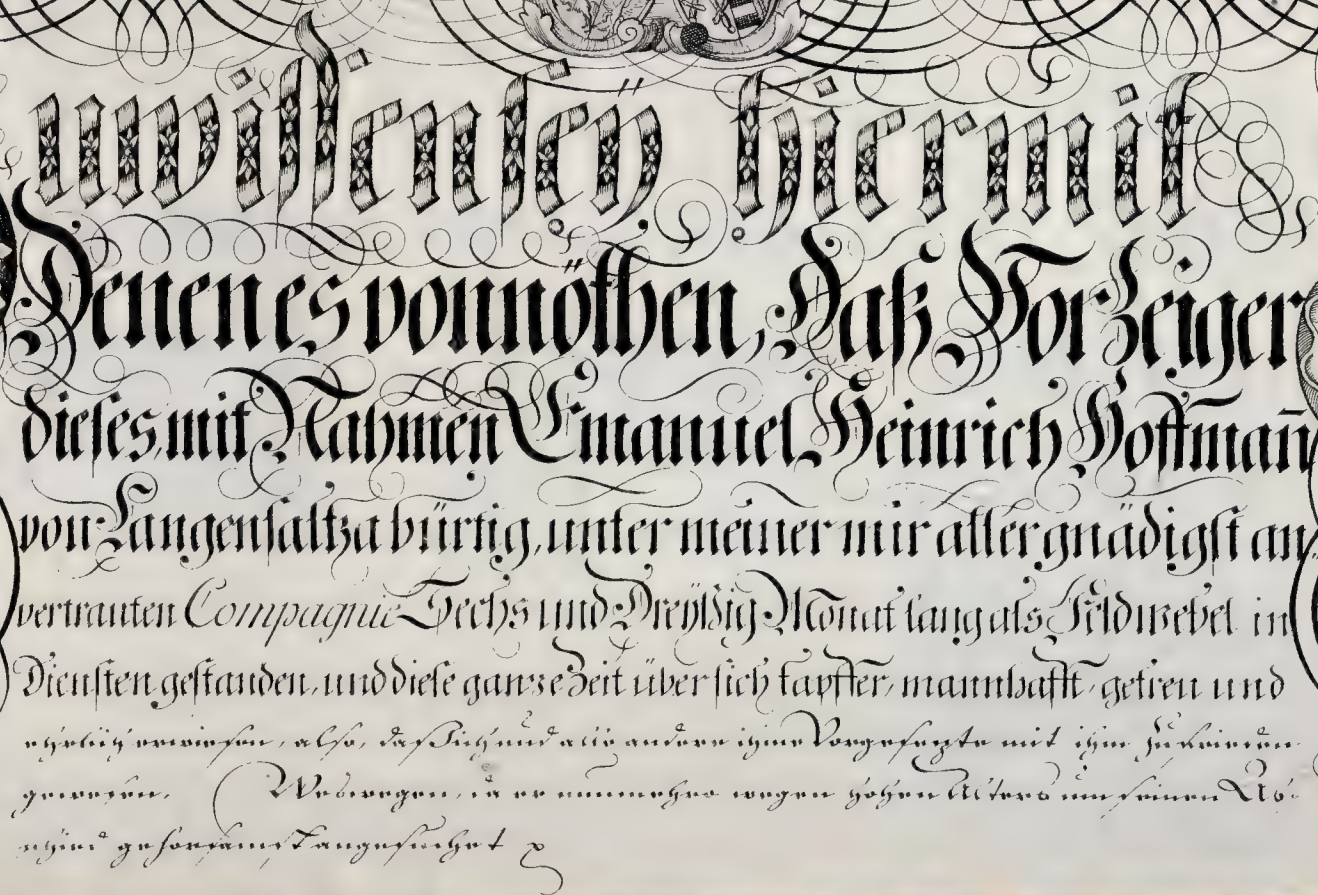 uwissenseÿ hiermit
Denen es vonnöthen, Daß Vorzeiger
dieses, mit Nahmen Emanuel Heinrich Hoffman̄
von Langensaltza bürtig, unter meiner mir allergnädigst an,
vertrauten Compagnie Sechs und Dreÿßig Monat lang als Feldwebel in
Diensten gestanden, und diese ganze Zeit über sich tapffer, mannhafft, getreu und
ehrlich erwiesen, also, daß ich und alle andere ihme Vorgesezte mit ihm zufrieden
gewesen. Weswegen, da er nunmehro wegen hohen Alters um seinen Ab-
schied gehorsamst angesuchet